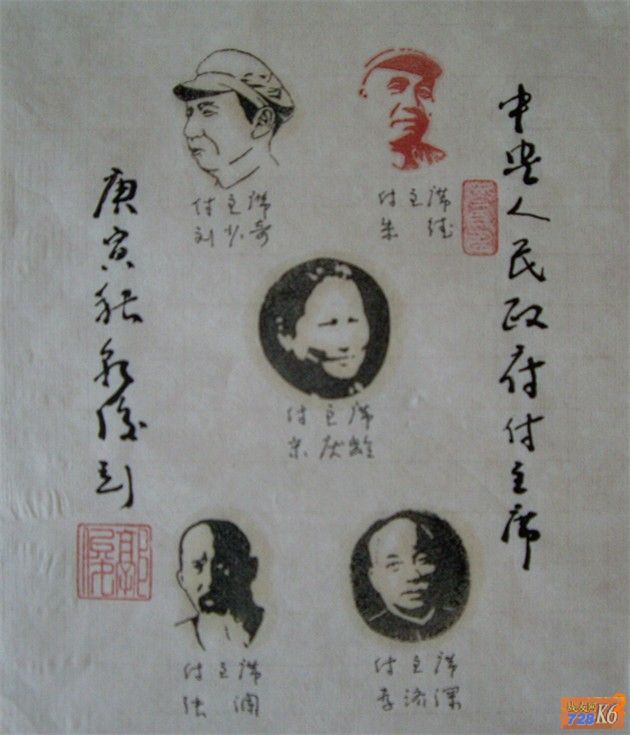 中央人民政府付主席
付主席
朱德
付主席
刘少奇
付主席
宋庆龄
付主席
李济深
付主席
张澜
庚寅
刻
战友网
728 K6